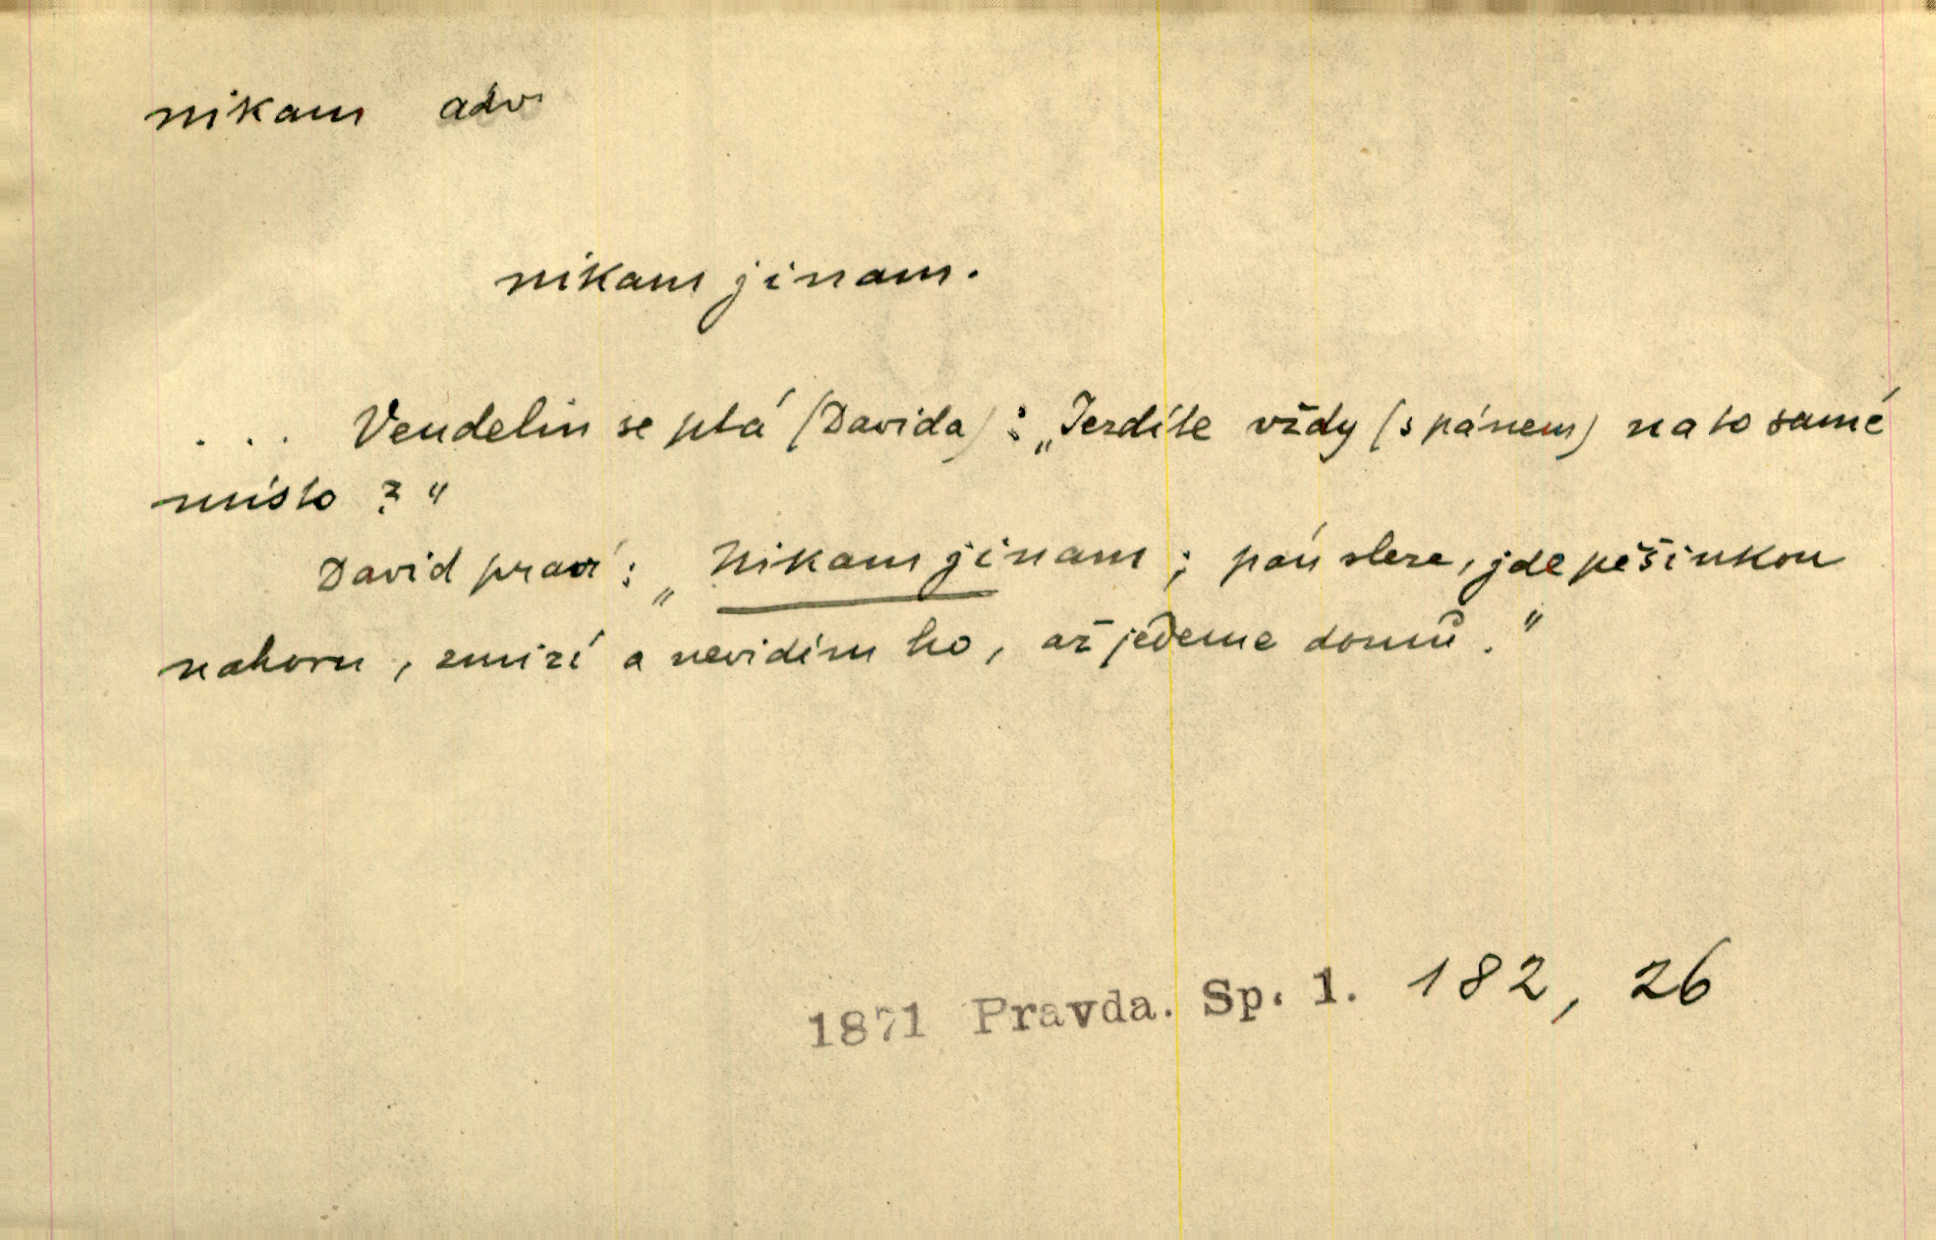 nikam adv.
nikam jinam.
... Vendelin se ptá (Davida): „Jezdíte vždy (s pánem) na to samé
místo?“
David praví: „Nikam jinam; pán sleze, jde pěšinkou
nahoru, zmizí a nevidím ho, až jedeme domů."
1871 Pravda. Sp. 1. 182, 26